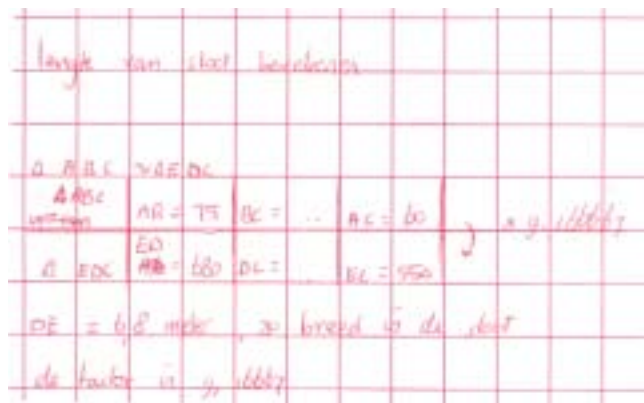 lengte van sloot berekenen
Δ ABC ~ Δ EDC
Δ ABC AB = 75 BC = .. AC = 60
× 9,166667
Δ EDC ED = 680 DC = ... EC = 550
DE = 6,8 meter, zo breed is de sloot
de factor is 9,16667